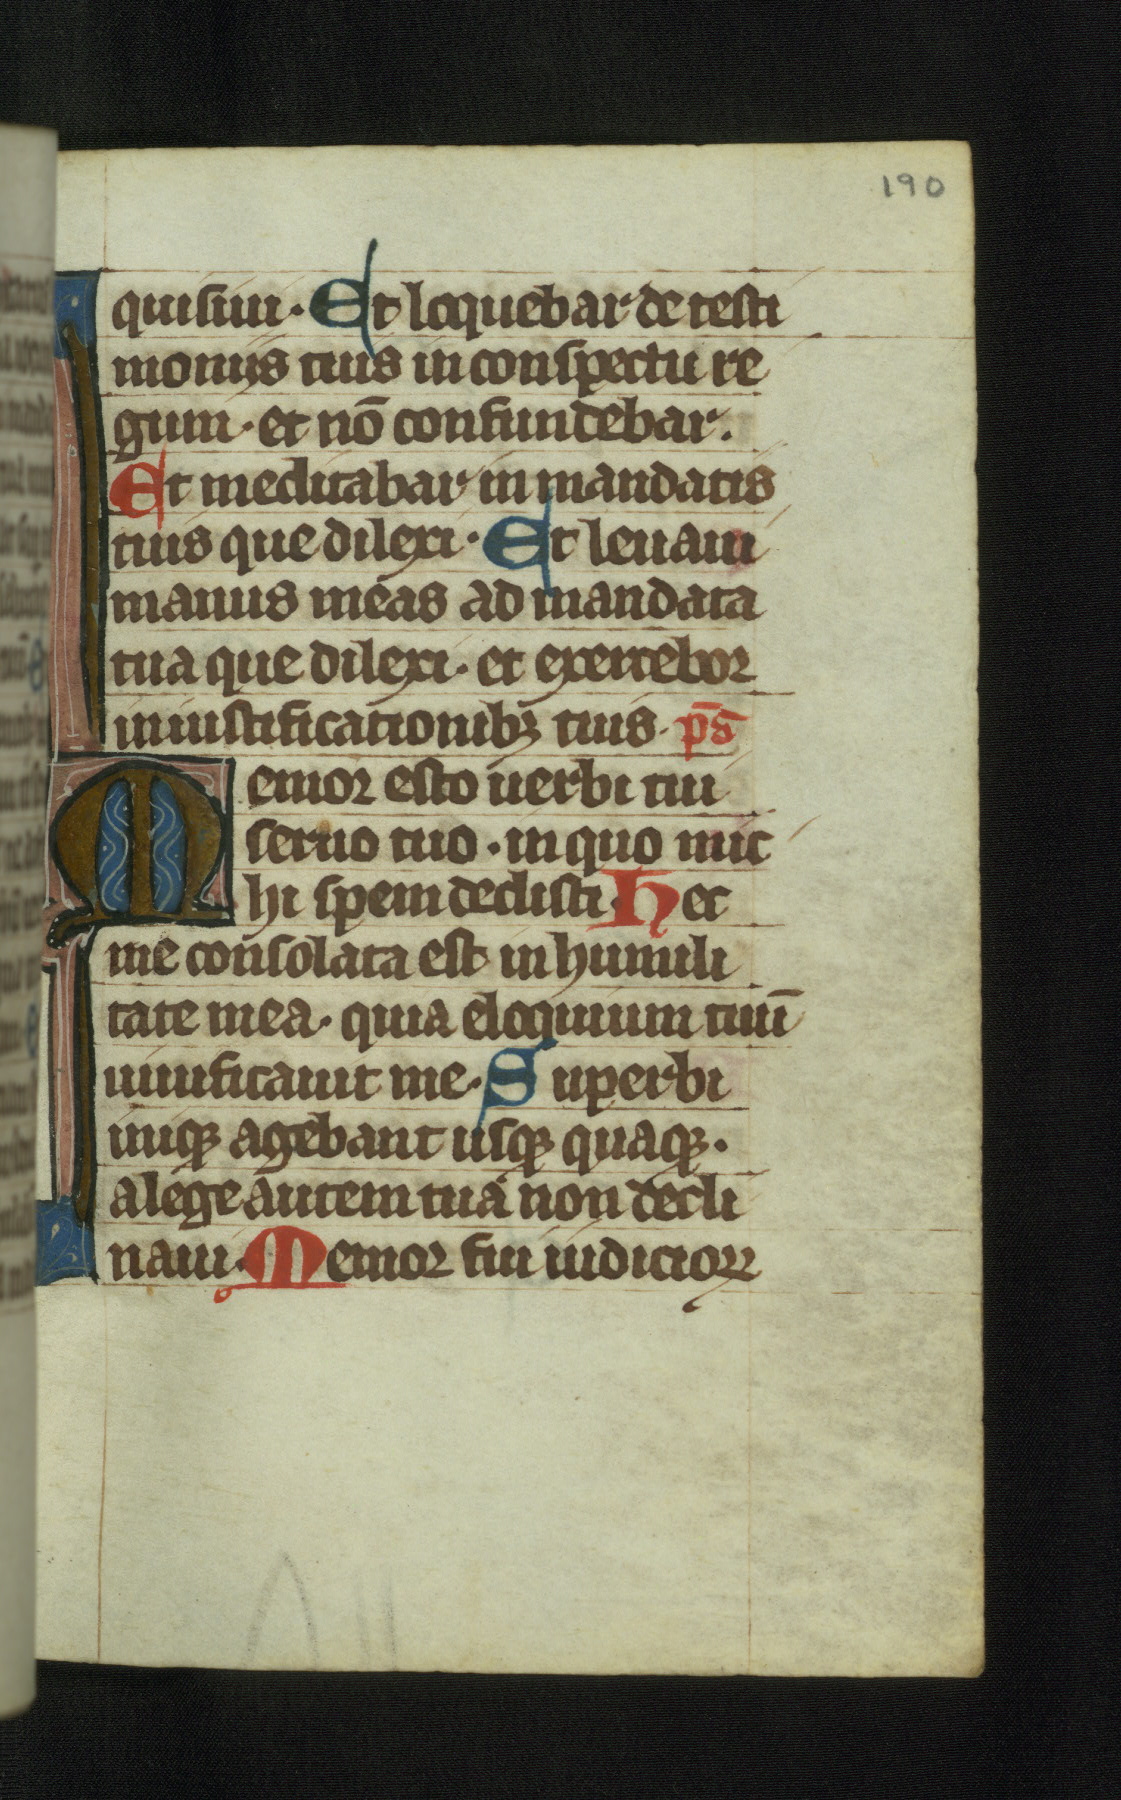 190
quisiui · Et loquebar de testi
moniis tuis in conspectu re
gum · et nō confundebar.
Et meditabar in mandatis
tuis que dilexi · Et leuaui
manus meas ad mandata
tua que dilexi · et exercebor
in iustificationibꝫ tuis · p̄s
Memor esto uerbi tui
seruo tuo · in quo mic
hi spem dedisti · Hec
me consolata est in humili
tate mea · quia eloquium tuū
uiuificauit me · Superbi
iniqꝫ agebant usqꝫ quaqꝫ ·
a lege autem tuā non decli
naui · Memor fui iudicioꝝ